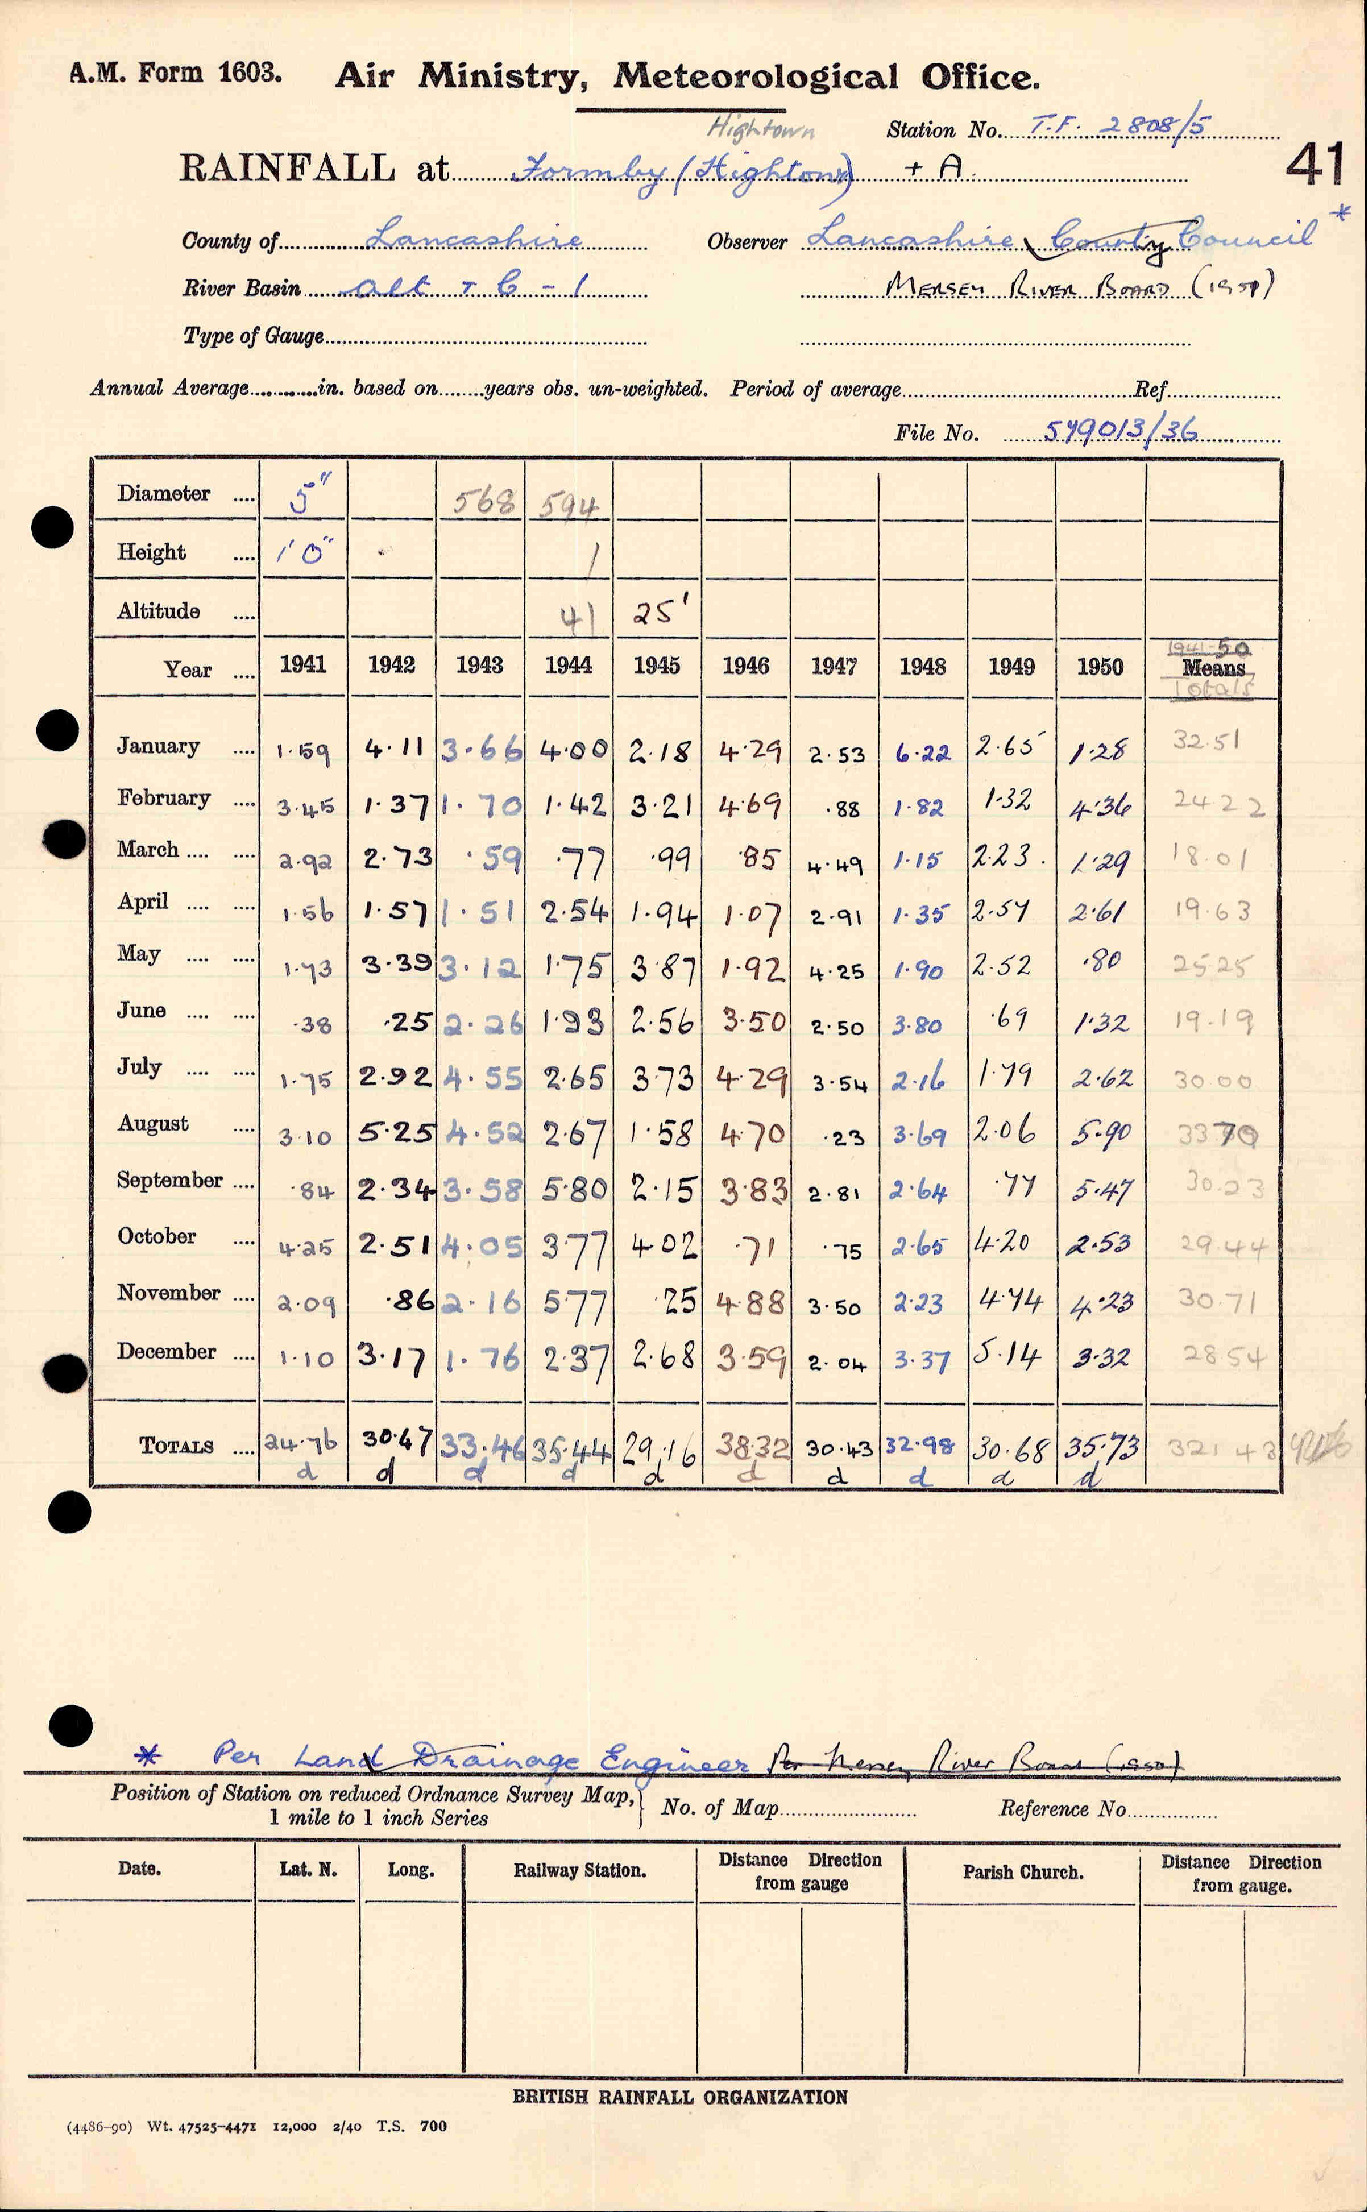 A.M. Form 1603. Air Ministry, Meteorological Office.
Hightown Station No. T.F. 2808/5
RAINFALL at Formby (Hightown) + A 41
County of Lancashire Observer Lancashire County Council *
River Basin Alt + C - 1 MERSEY RIVER BOARD (1950)
Type of Gauge
Annual Average in. based on years obs. un-weighted. Period of average Ref.
File No. 549013/36
Diameter .... 5" 568 594
Height .... 1'0" 1
Altitude .... 41 25'
1941-50
Year .... 1941 1942 1943 1944 1945 1946 1947 1948 1949 1950 Means
Totals
January .... 1.59 4.11 3.66 4.00 2.18 4.29 2.53 6.22 2.65 1.28 32.51
February .... 3.45 1.37 1.70 1.42 3.21 4.69 .88 1.82 1.32 4.36 24.22
March .... .... 2.92 2.73 .59 .77 .99 .85 4.49 1.15 2.23 1.29 18.01
April .... .... 1.56 1.57 1.51 2.54 1.94 1.07 2.91 1.35 2.57 2.61 19.63
May .... .... 1.73 3.39 3.12 1.75 3.87 1.92 4.25 1.90 2.52 .80 25.25
June .... .... .38 .25 2.26 1.93 2.56 3.50 2.50 3.80 .69 1.32 19.19
July .... .... 1.75 2.92 4.55 2.65 3.73 4.29 3.54 2.16 1.79 2.62 30.00
August .... 3.10 5.25 4.52 2.67 1.58 4.70 .23 3.69 2.06 5.90 33.70
September .... .84 2.34 3.58 5.80 2.15 3.83 2.81 2.64 .77 5.47 30.23
October .... 4.25 2.51 4.05 3.77 4.02 .71 .75 2.65 4.20 2.53 29.44
November .... 2.09 .86 2.16 5.77 .25 4.88 3.50 2.23 4.74 4.23 30.71
December .... 1.10 3.17 1.76 2.37 2.68 3.59 2.04 3.37 5.14 3.32 28.54
TOTALS .... 24.76 30.47 33.46 35.44 29.16 38.32 30.43 32.98 30.68 35.73 321.43
d d d d d d d d d d
* Per Land Drainage Engineer Per Mersey River Board (1950)
Position of Station on reduced Ordnance Survey Map, No. of Map Reference No.
1 mile to 1 inch Series
Date. Lat. N. Long. Railway Station. Distance Direction from gauge Parish Church. Distance Direction from gauge.
BRITISH RAINFALL ORGANIZATION
(4486-90) Wt. 47525-4471 12,000 2/40 T.S. 700